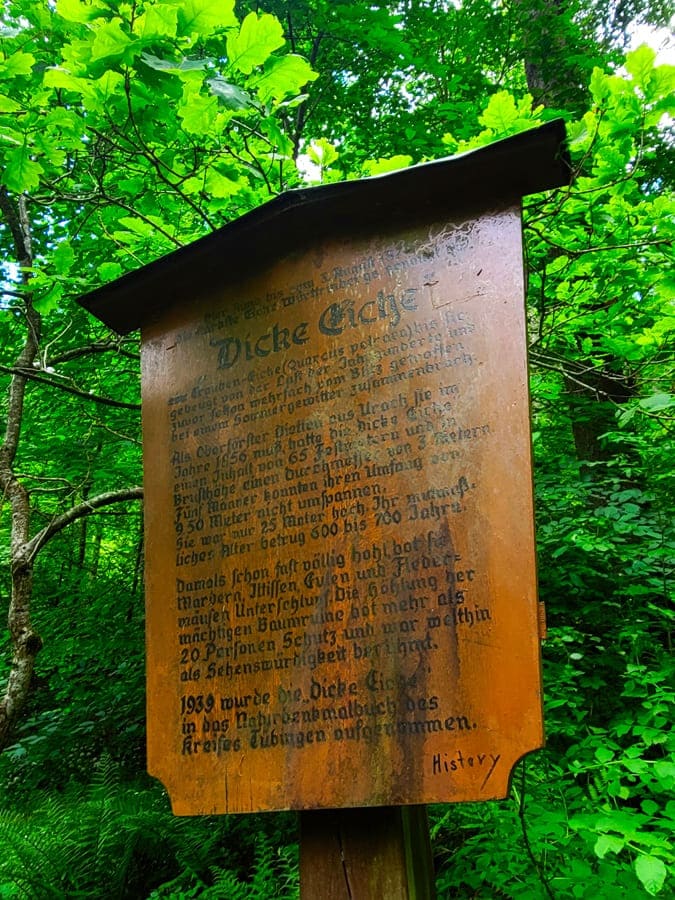 Hier, stand bis zum 3. August
die stärkste Eiche Württembergs genannt die
"Dicke Eiche"
eine Trauben-Eiche (Quercus petraea) bis sie
gebeugt von der Last der Jahrhunderte und
zuvor schon mehrfach vom Blitz getroffen
bei einem Sommergewitter zusammenbrach.
Als Oberförster Dietlen aus Urach sie im
Jahre 1856 maß, hatte die dicke Eiche
einen Inhalt von 65 Festmetern und in
Brusthöhe einen Durchmesser von 3 Metern
Fünf Männer konnten ihren Umfang von
9,50 Meter nicht umspannen.
Sie war nur 25 Meter hoch, Ihr mutmaß-
liches Alter betrug 600 bis 700 Jahre.
Damals schon fast völlig hohl bot sie
Mardern, Iltissen, Eulen und Fleder-
mäusen Unterschlupf. Die Höhlung der
mächtigen Baumruine bot mehr als
20 Personen Schutz und war weithin
als Sehenswürdigkeit berühmt.
1939 wurde die "Dicke Eiche"
in das Naturdenkmalbuch des
Kreises Tübingen aufgenommen.
History